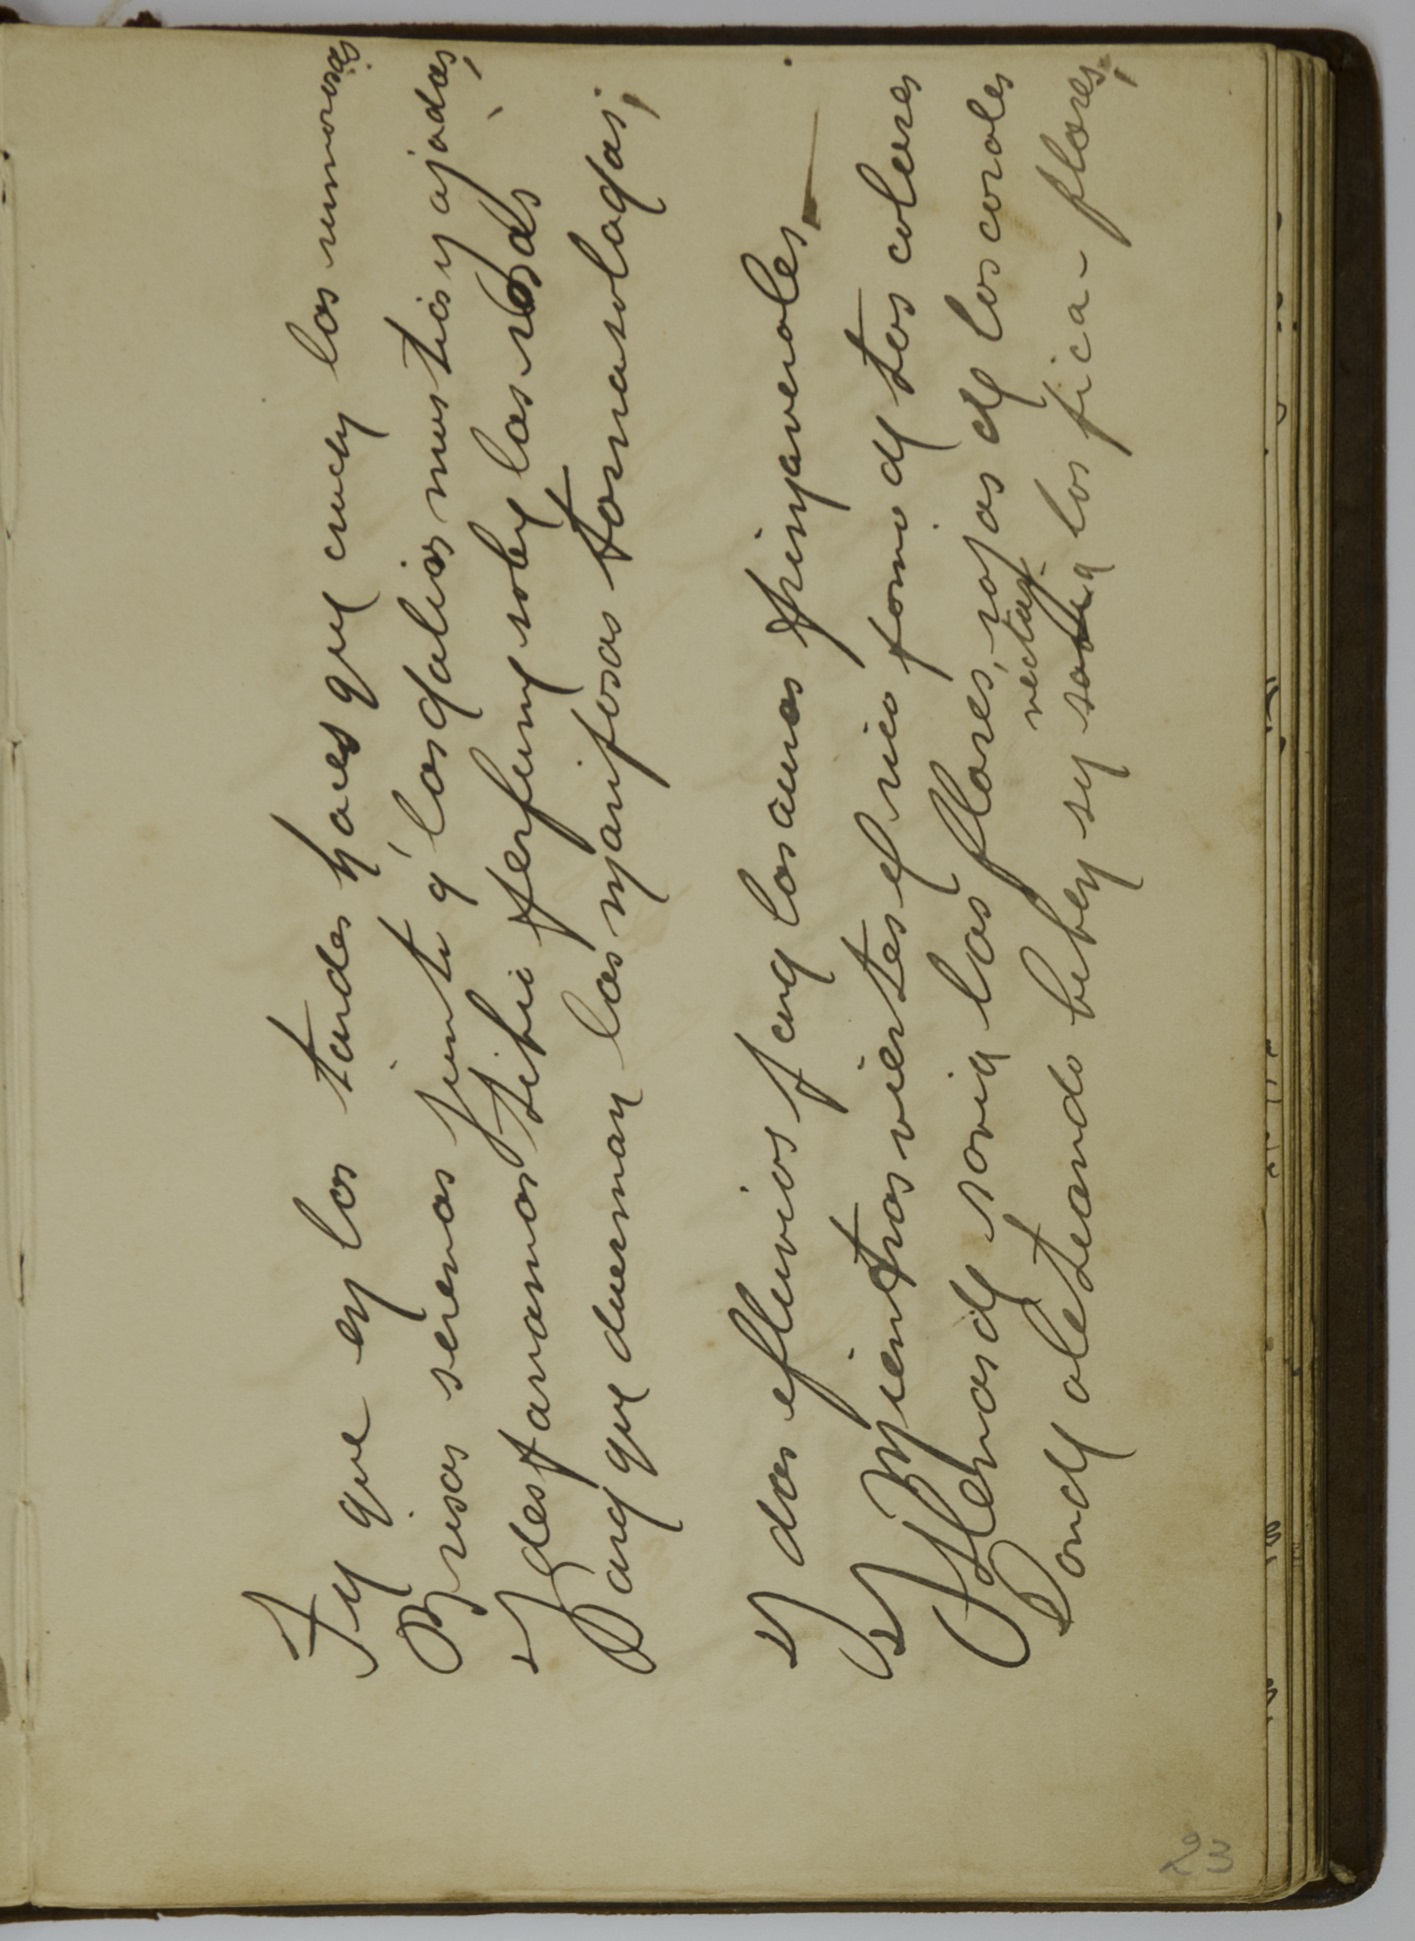 Tú que en las tardes haces que crucen las rumorosas
Brisas serenas junto á las dalias mustias y ajadas,
Y desparramas tibio perfume sobre las rosas
Para que duerman las mariposas tornasoladas;
Y das efluvios para las auras primaverales,
Y Mientras viertes el rico pomo de tus colores
Llenas de savia las flores rojas de los corales
nectar
Donde aleteando beben su savia los pica-flores;
23